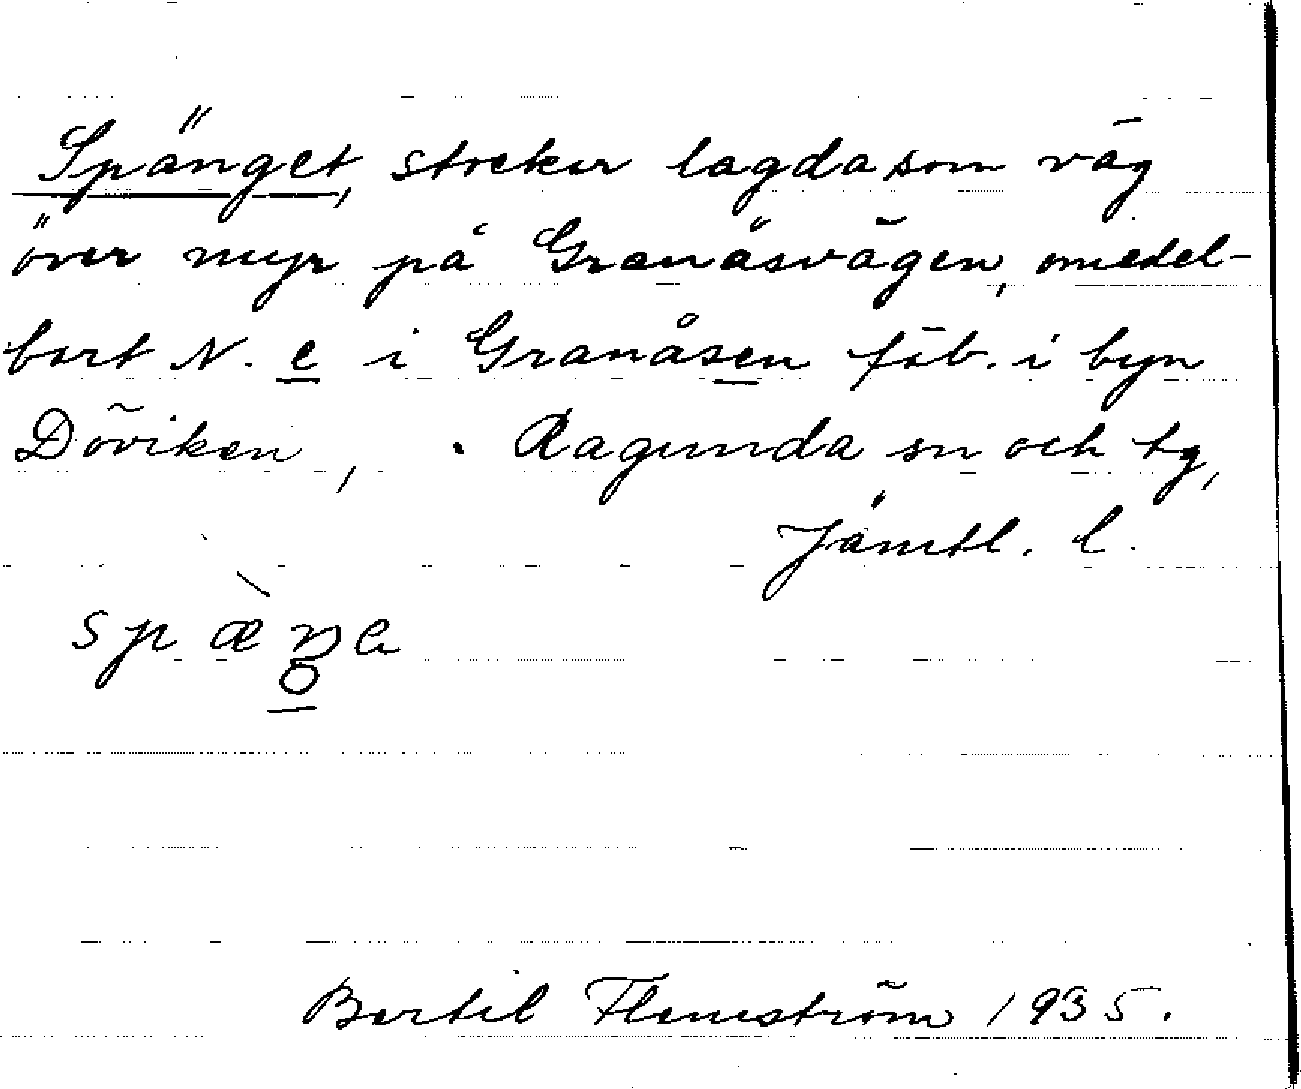 Spänget, stocker lagda som väg
över myr på Granåsvägen, omedel-
bart N. e i Granåsen fäb. i byn
Döviken, . Ragunda sn och tg,
Jämtl. l.
spæ̀ŋe
Bertil Flemström 1935.